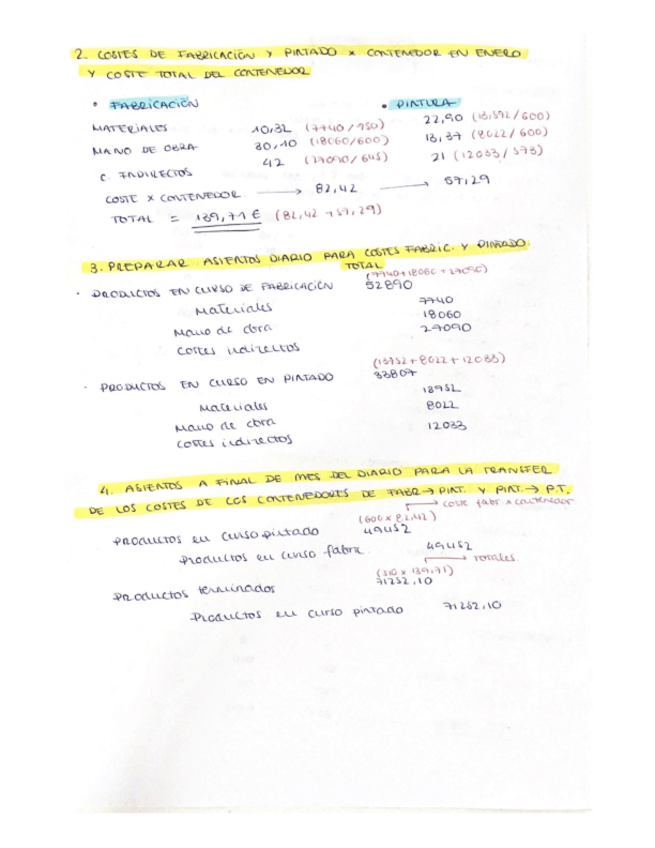 2. COSTES DE FABRICACIÓN Y PINTADO X CONTENEDOR EN ENERO
Y COSTE TOTAL DEL CONTENEDOR
• FABRICACIÓN
• PINTURA
MATERIALES 10,32 (7740/750) 22,90
MANO DE OBRA 30,10 (18060/600) 13,37 (8022/600)
C. INDIRECTOS 42 21
COSTE X CONTENEDOR → 82,42 → 57,29
TOTAL = 139,71 € (82,42 + 57,29)
3. PREPARAR ASIENTOS DIARIO PARA COSTES FABRIC. Y PINTADO.
TOTAL
(7740+18060+27090)
· PRODUCTOS EN CURSO DE FABRICACIÓN 52890
Materiales 7740
Mano de obra 18060
Costes indirectos 27090
(13752 + 8022 + 12033)
· PRODUCTOS EN CURSO EN PINTADO 33807
Materiales
Mano de obra 8022
Costes indirectos 12033
4. ASIENTOS A FINAL DE MES DEL DIARIO PARA LA TRANSFER
DE LOS COSTES DE LOS CONTENEDORES DE FABR → PINT. Y PINT. → P.T.
→ coste fabr x contenedor
(600 x 82,42)
Productos en curso pintado 49452
Productos en curso fabric. 49452
→ totales
(510 x 139,71)
Productos terminados 71252,10
Productos en curso pintado 71252,10